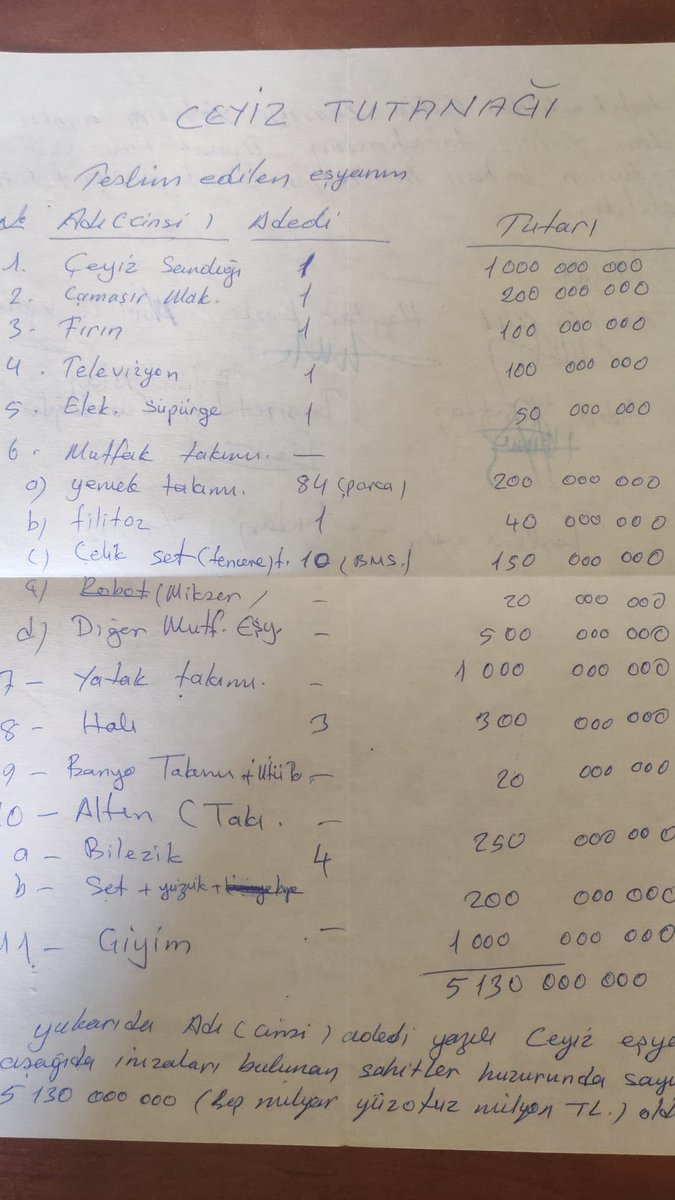 CEYİZ TUTANAĞI
Teslim edilen eşyanın
Adı (cinsi) Adedi Tutarı
1. Çeyiz Sandığı 1 1000 000 000
2. Çamaşır Mak. 1 200 000 000
3. Fırın 1 100 000 000
4. Televizyon 1 100 000 000
5. Elek. Süpürge 1 50 000 000
6. Mutfak takımı. —
a) yemek takımı. 84 (parça) 200 000 000
b) filitoz 1 40 000 000
c) Çelik set (tencere) t. 10 (BMS.) 150 000 000
Robot (Mikser / - 20 000 000
d) Diğer Mutf. Eşy. - 500 000 000
7 - Yatak takımı. - 1 000 000 000
8 - Halı 3 300 000 000
9 - Banyo Takımı + ütü — 20 000 000
10 - Altın (Takı. —
a - Bilezik 4 250 000 000
b - Set + yüzük + 200 000 000
11 - Giyim — 1 000 000 000
5 130 000 000
yukarıda Adı (cinsi) adedi yazılı Ceyiz eşya
aşağıda imzaları bulunan şahitler huzurunda
5 130 000 000 (Beş milyar yüzotuz milyon TL.)